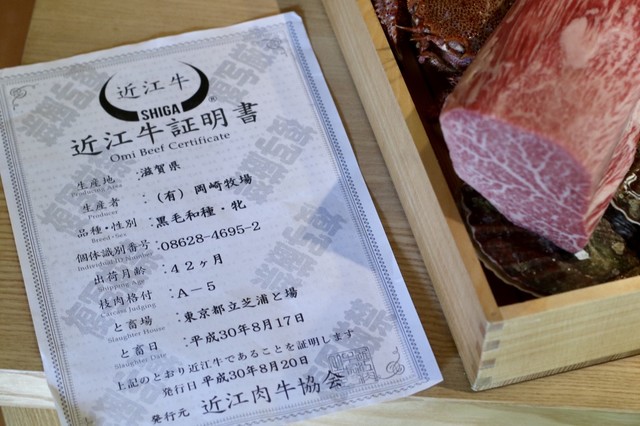 近江牛
SHIGA ®
近江牛証明書
Omi Beef Certificate
生産地 :滋賀県
Producing Area
生産者 :(有) 岡崎牧場
Producer
品種・性別 :黒毛和種・牝
Breed・Sex
個体識別番号 :08628-4695-2
Individual ID Number
出荷月齢 :42ヶ月
Shipping Age
枝肉格付 :A-5
Carcass Judging
と畜場 :東京都立芝浦と場
Slaughter House
と畜日 :平成30年8月17日
Slaughter Date
上記のとおり近江牛であることを証明します
発行日 平成30年8月20日
発行元 近江肉牛協会